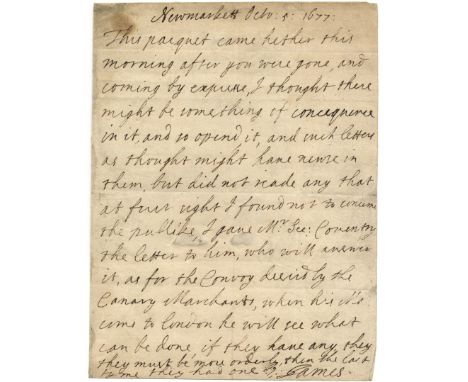 Newmarkett Octo: 5: 1677:
This pacquet came hether this
morning after you were gone, and
coming by expresse, I thought there
might be something of concequence
in it, and so opend it, and such letters
as thought might have newse in
them, but did not reade any that
at first sight I found not to concerne
the publike, I gave Mr Sec: Coventry
the letter to him, who will answer
it, as for the Convoy desird by the
Canary Marchants, when his Ma
come to London he will see what
can be done if they have any, they
they must be more orderly then the last
time they had one James